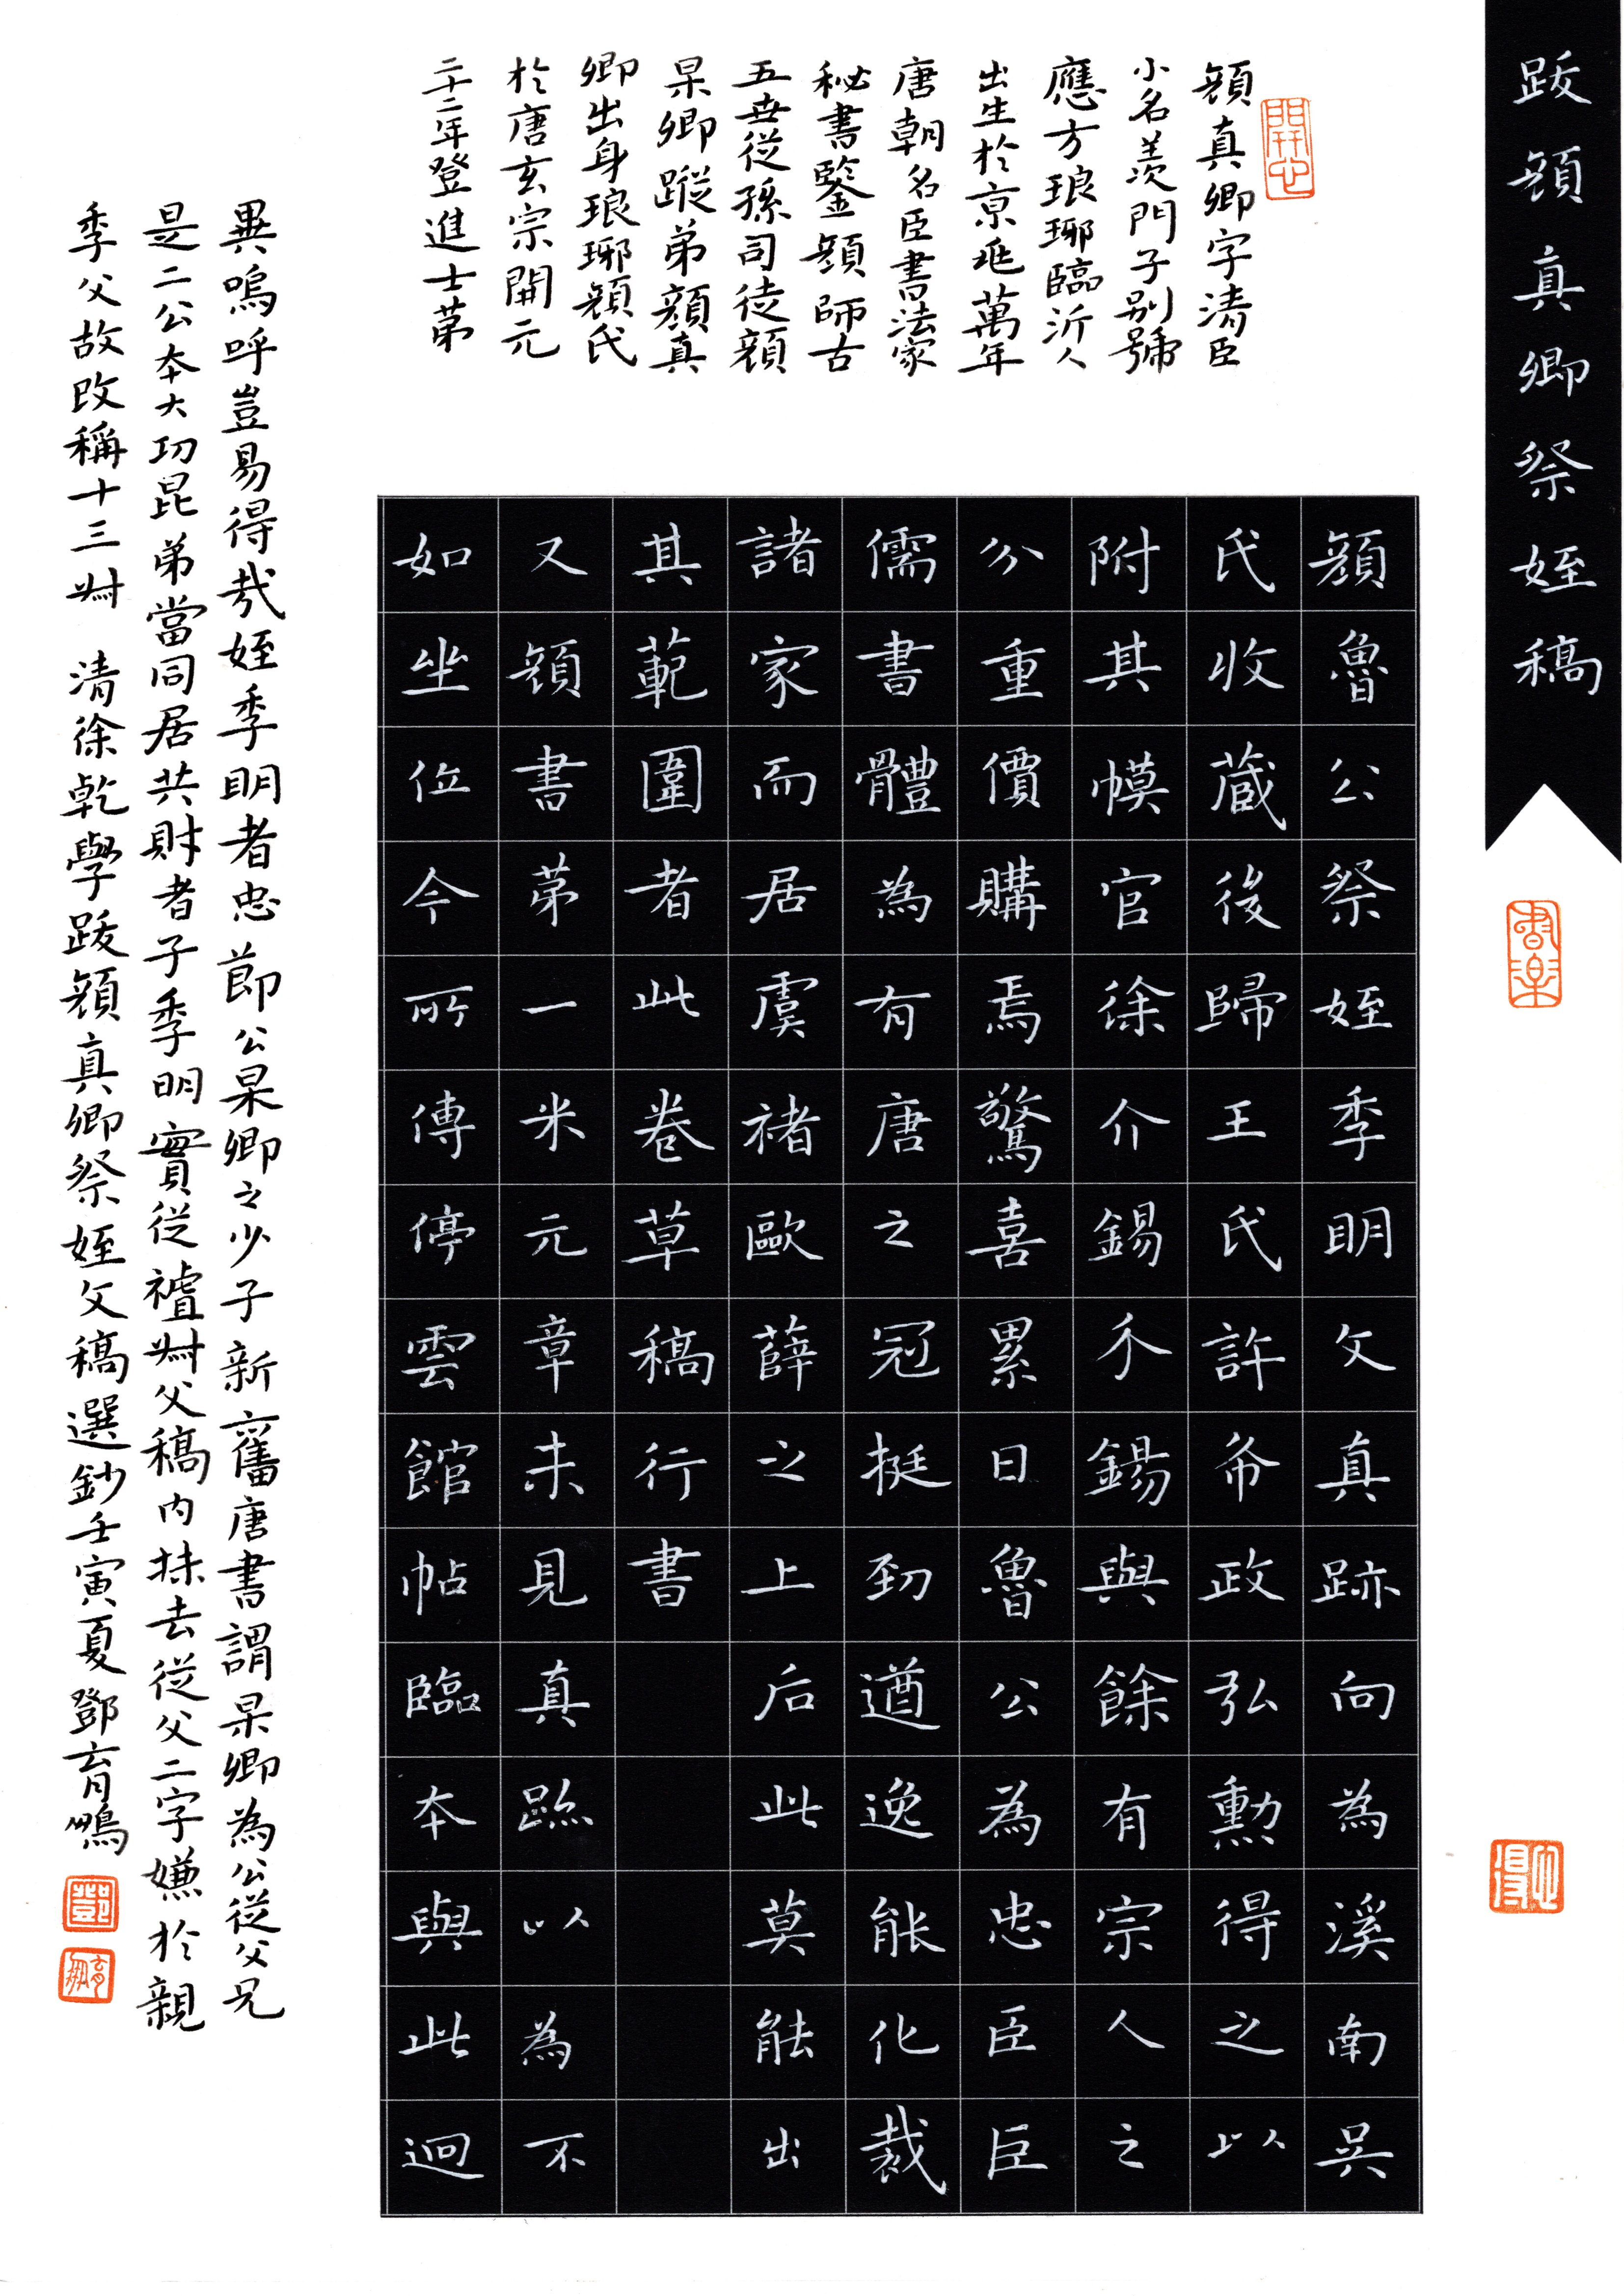 跋顔真卿祭姪稿
書樂
心得
開心
顔真卿字清臣
小名羨門子别號
應方琅琊臨沂人
出生於京兆萬年
唐朝名臣書法家
秘書鑒顔師古
五世從孫司徒顔
杲卿蹤弟顔真
卿出身琅琊顔氏
於唐玄宗開元
二十二年登進士第
顔魯公祭姪季明文真跡向為溪南吳
氏收藏後歸王氏許希政弘勲得之以
附其幙官徐介錫介錫與餘有宗人之
分重價購焉驚喜累日魯公為忠臣臣
儒書體為有唐之冠挺勁遒逸能化裁
諸家而居虞褚歐薛之上后此莫能出
其範圍者此卷草稿行書
又顔書第一米元章未見真跡以為不
如坐位今所傳停雲館帖臨本與此迥
異嗚呼豈易得哉姪季明者忠節公杲卿之少子新舊唐書謂杲卿為公從父兄
是二公本大功昆弟當同居共財者子季明實從叔父稿內抹去從父二字嫌於親
季父故改稱十三叔 清徐乾學跋顔真卿祭姪文稿選鈔壬寅夏鄧育鵬
鄧
育鵬